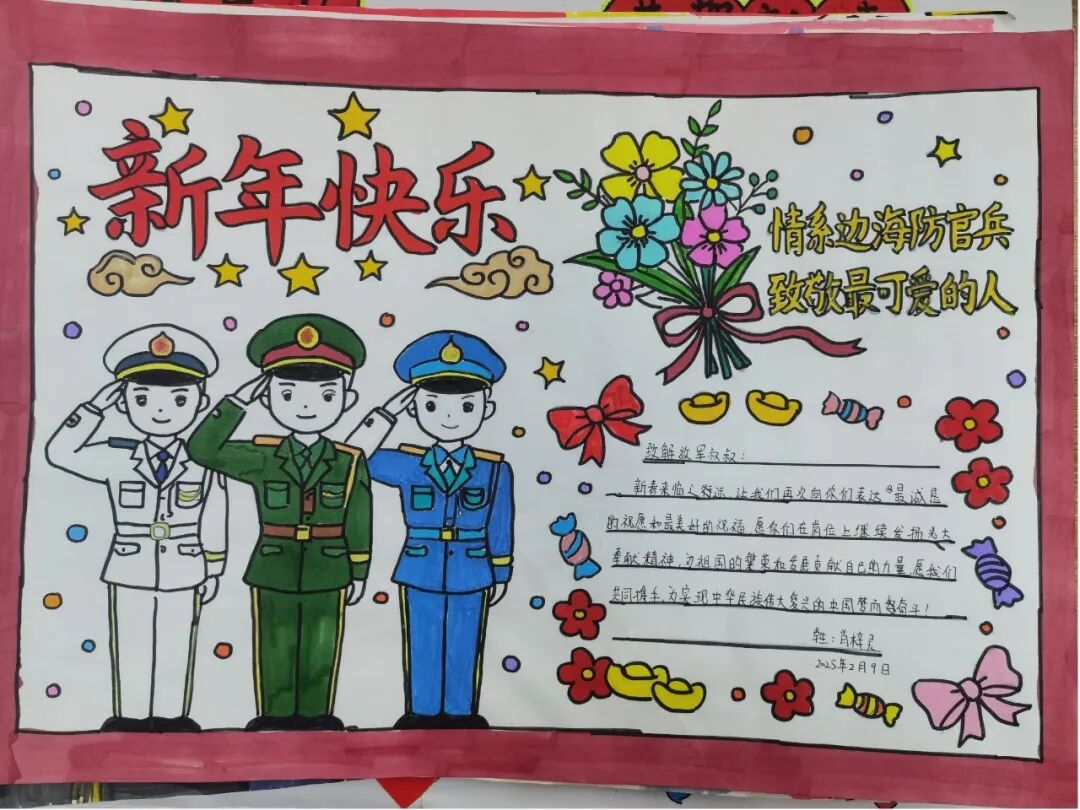 新年快乐
情系边海防官兵
致敬最可爱的人
致解放军叔叔：
新春来临之际，让我们再次向你们表达最诚恳
的祝愿和最美好的祝福，愿你们在岗位上继续发扬光大
奉献精神，为祖国的繁荣和发展贡献自己的力量，愿我们
共同携手，为实现中华民族伟大复兴的中国梦而努奋斗！
肖梓灵
2025年2月9日